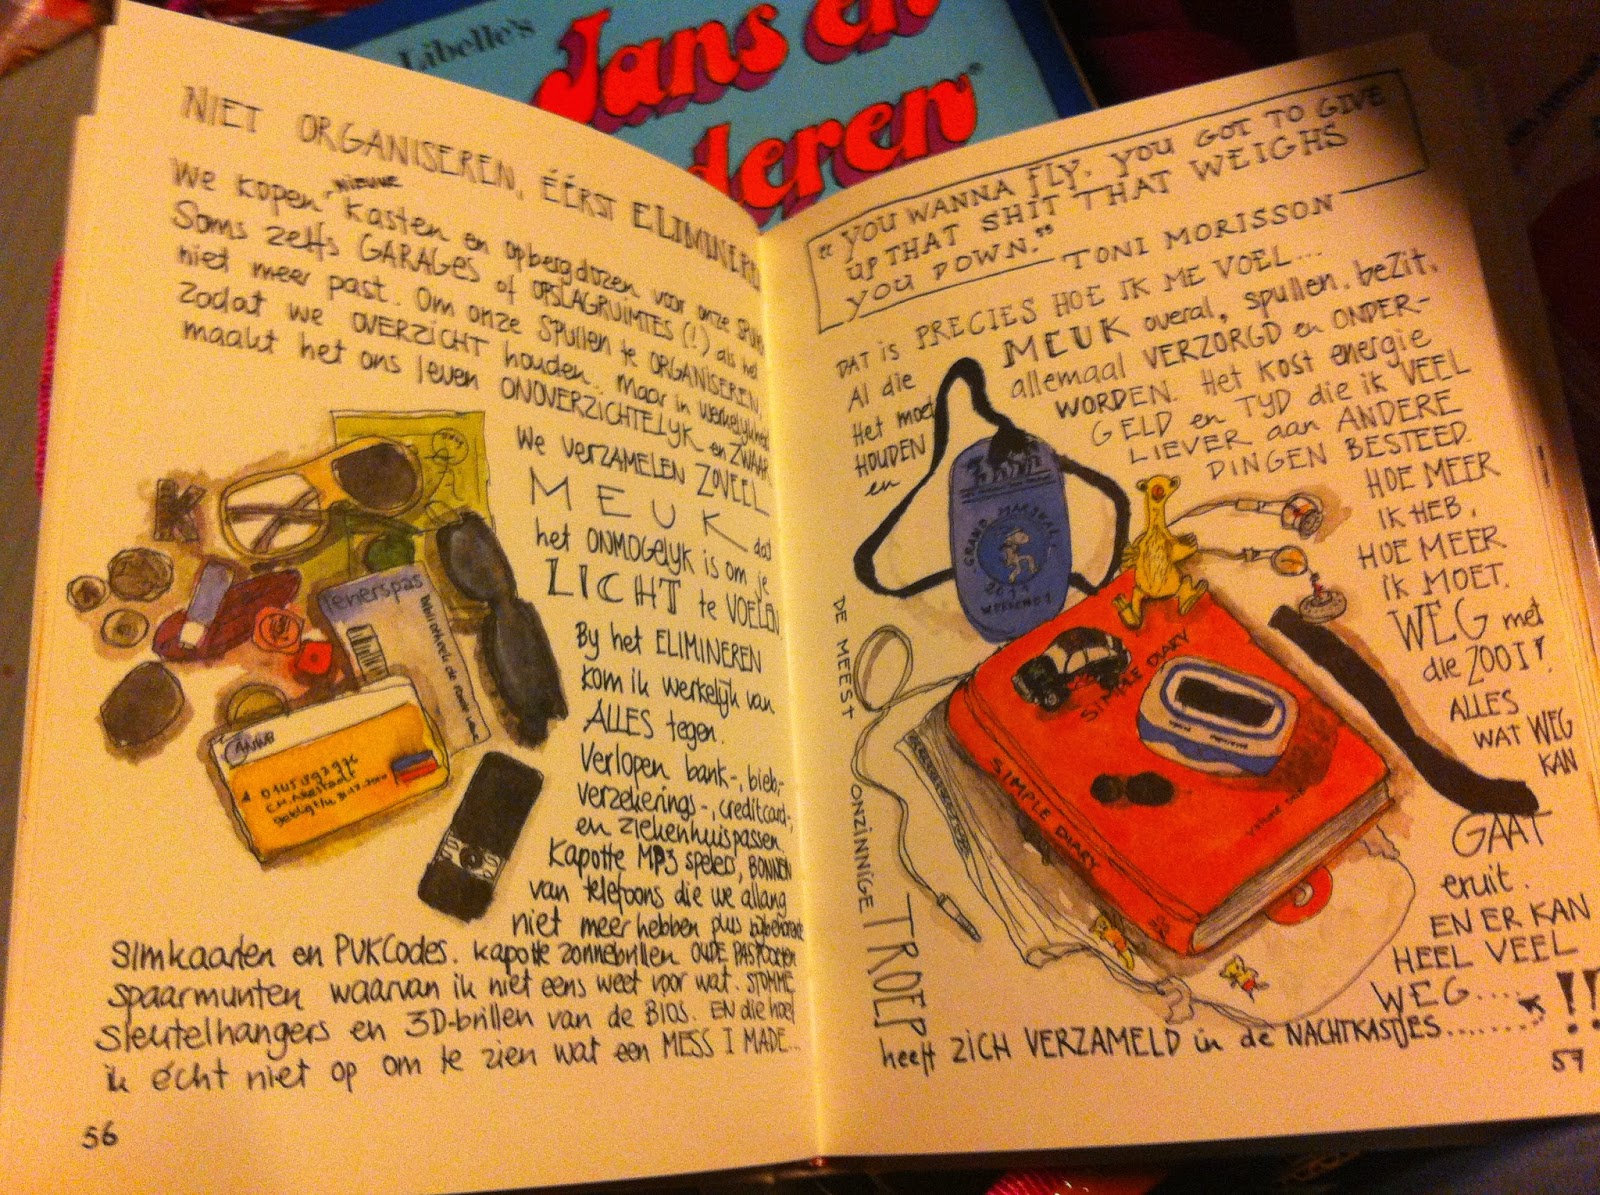 Libelle's
Jans en
deren
NIET ORGANISEREN, ÉÉRST ELIMINEREN
We kopen NIEUWE kasten en opbergdozen voor onze SPULLEN
Soms zelfs GARAGES of OPSLAGRUIMTES (!) als het
niet meer past. Om onze SPULLEN te ORGANISEREN.
Zodat we OVERZICHT houden. Maar in werkelijkheid
maakt het ons leven ONOVERZICHTELIJK en ZWAAR
We VERZAMELEN ZOVEEL
MEUK dat
het ONMOGELIJK is om je
LICHT te VOELEN
By het ELIMINEREN
kom ik werkelijk van
ALLES tegen.
Verlopen bank-, bieb-,
verzekerings-, creditcard-,
en ziekenhuispassen.
Kapotte MP3 speler, BONNEN
van telefoons die we allang
niet meer hebben plus bijbehorende
Simkaarten en PUKCodes. Kapotte zonnebrillen OUDE PASPOORTEN
spaarmunten waarvan ik niet eens weet voor wat. STOMME
sleutelhangers en 3D-brillen van de BIOS. EN die hoef
ik écht niet op om te zien wat een MESS I MADE...
K
lenerspas
Bibliotheek
ANWB
56
"YOU WANNA FLY, YOU GOT TO GIVE
UP THAT SHIT THAT WEIGHS
YOU DOWN."
TONI MORISSON
DAT is PRECIES HOE IK ME VOEL...
Al die MEUK overal, spullen. beZit.
Het moet allemaal VERZORGD en ONDER-
HOUDEN WORDEN. Het kost energie
en GELD en TYD die ik VEEL
LIEVER aan ANDERE
DINGEN BESTEED.
HOE MEER
IK HEB,
HOE MEER
IK MOET.
WEG met
die ZOOI!
ALLES
WAT WEG
KAN
GAAT
eruit.
EN ER KAN
HEEL VEEL
WEG....!!
GRAND MARSHALL
2011
SIMPLE DIARY
SIMPLE DIARY
DE MEEST ONZINNIGE TROEP
heeft ZICH VERZAMELD in de NACHTKASTJES........
57